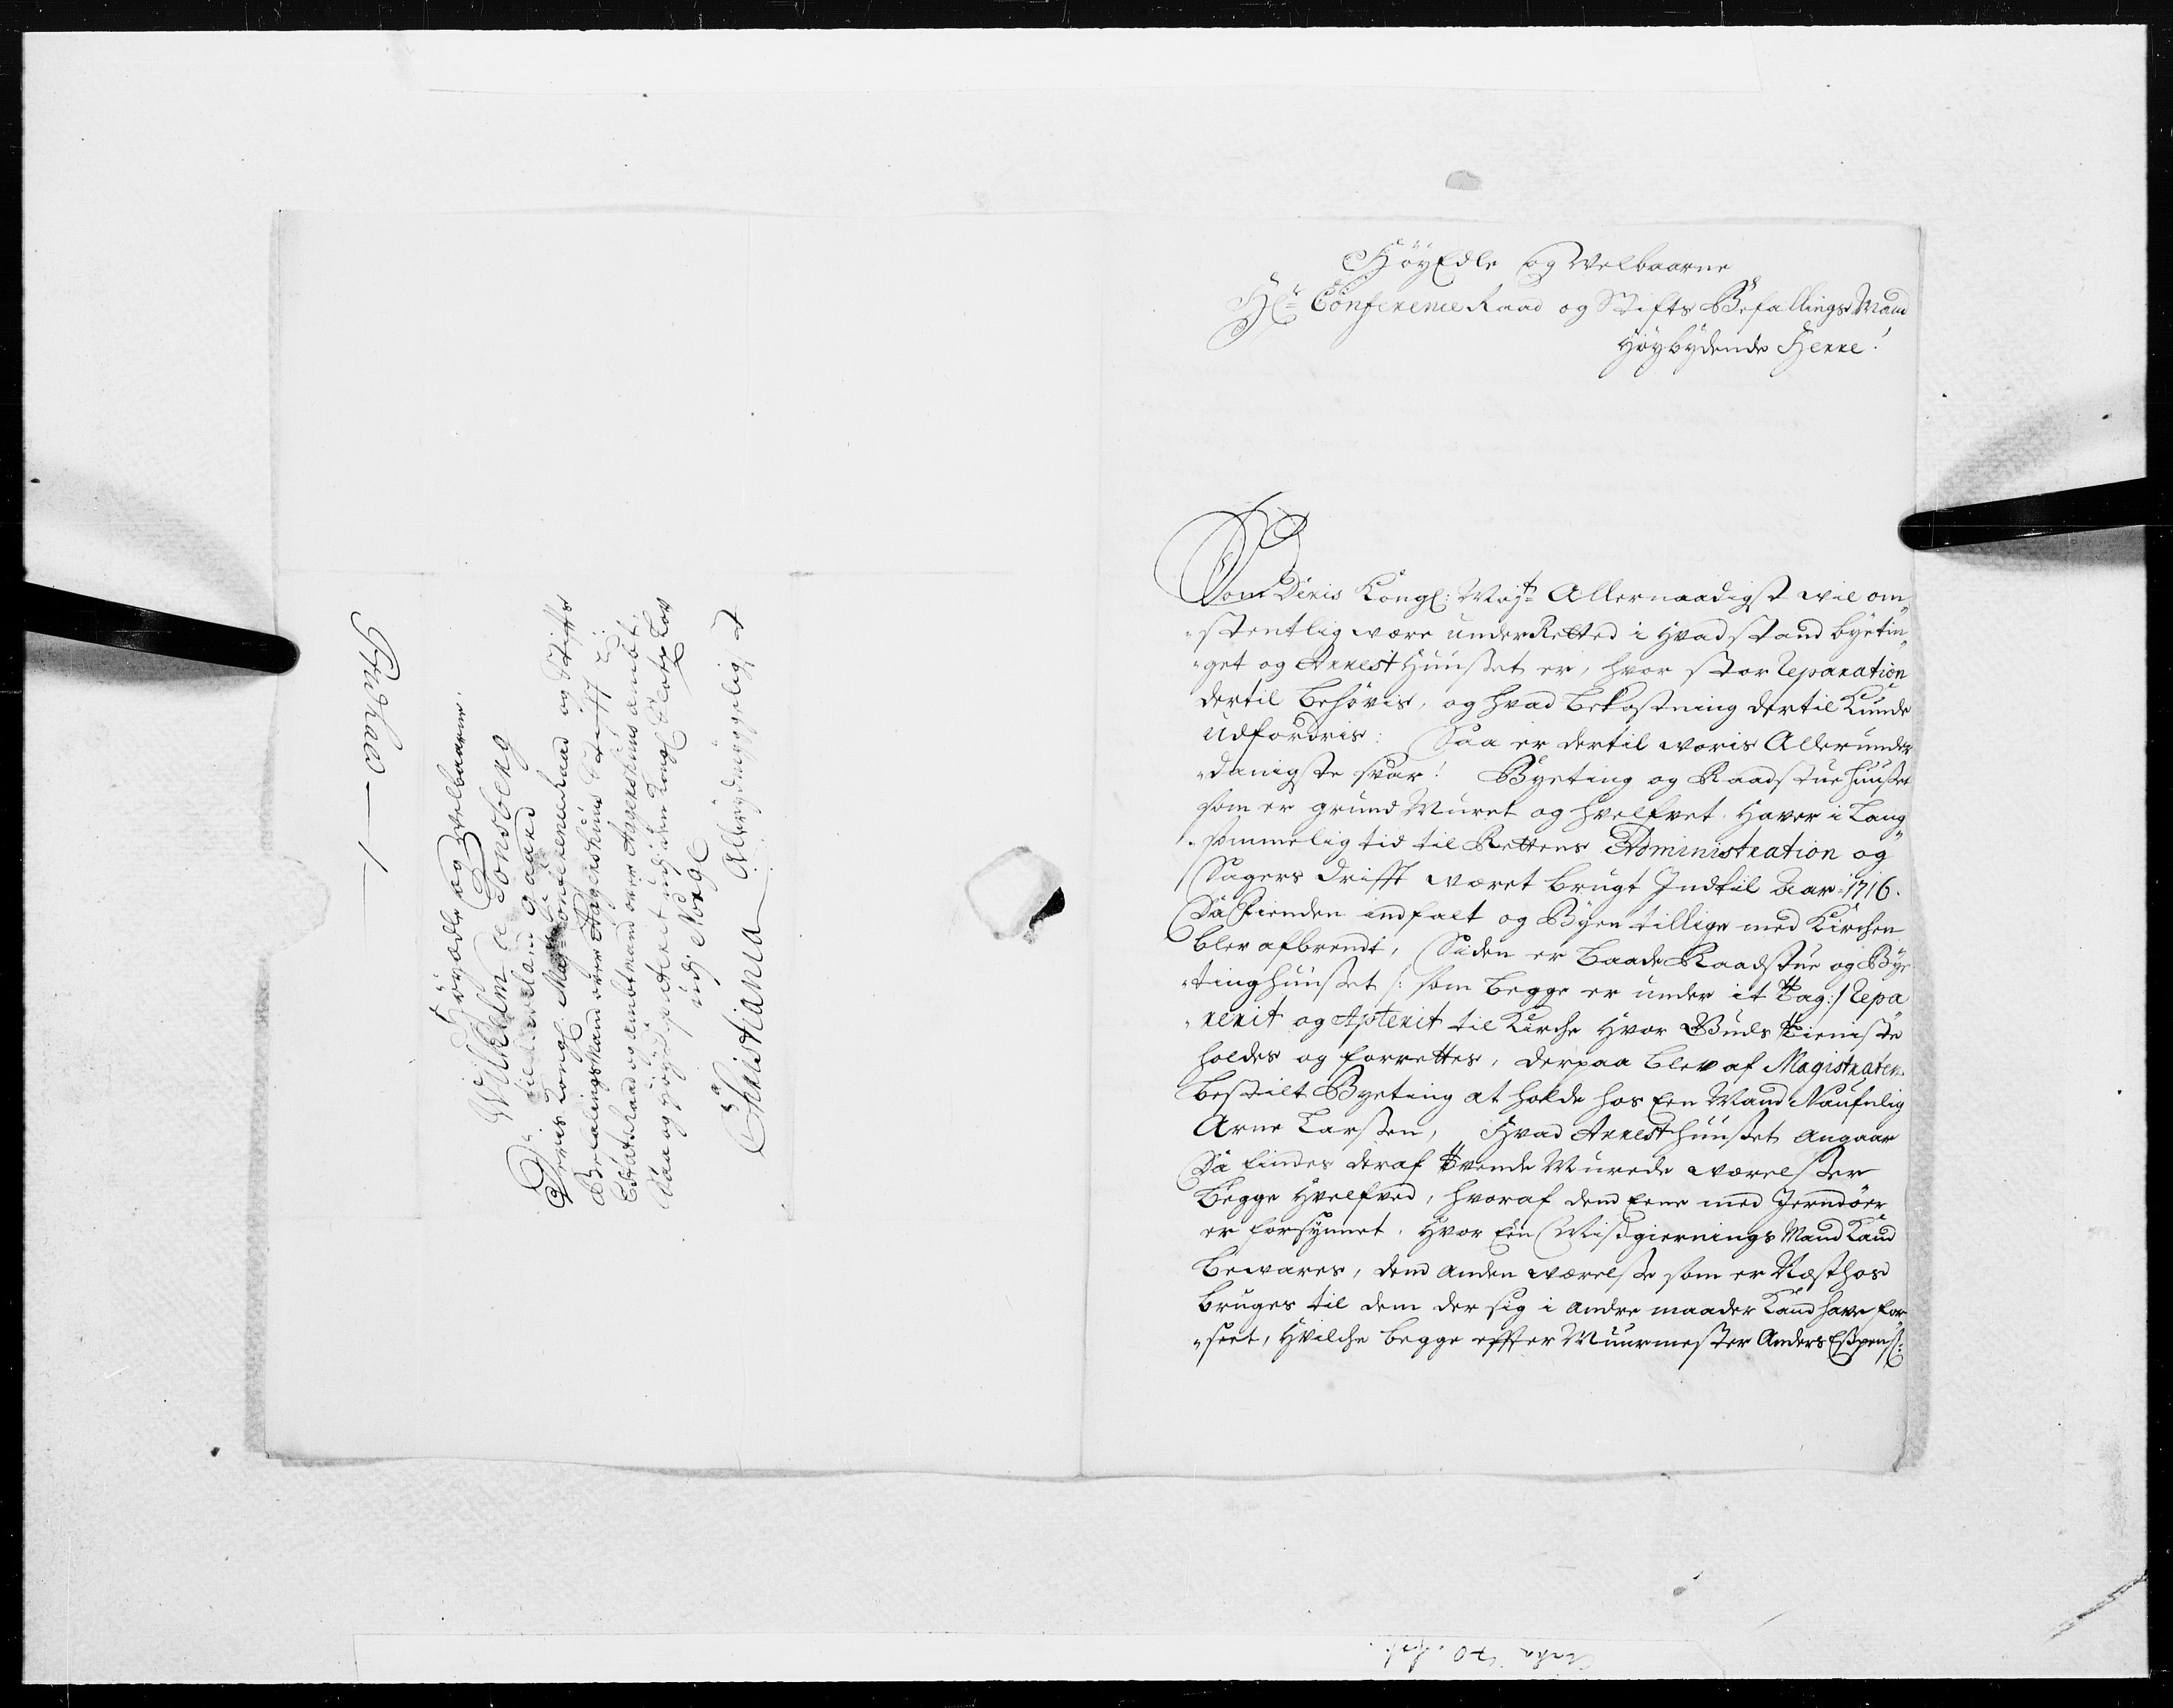 HøyEdle og Velbaarne
Hr: ConferenceRaad og Stifts BefallingsMand
Høybydende Herre!
Som Deris Kongl: May:tt Allernaadigst vil om„
„stentlig være underRetted i Hvad stand byetin„
„get og Arrest Huuset er, hvor stor Reparation
dertil behøvis, og hvad bekostning dertil Kunde
Udfordris: Saa er dertil voris Allerunder
„danigste svar! Byeting og Raadstue huuset
som er grund Muret og hvelfvet. Haver i Lang
„sommelig tid til Rettens Administration og
Sagers Drifft været brugt Indtil Aar 1716.
Da Fienden indfalt og Byen tillige med Kirchen
blev afbrendt, Siden er baade Raadstue og Bye
„tinghuuset /: som begge er under it tag :/ Repa
„rerit og Apterit til Kirche Hvor Guds tieniste
holdes og forrettes, derpaa blev af Magistraten
bestilt Byeting at holde hos Een Mand Naufnlig
Arne Larsen, Hvad Arresthuuset angaar
Da findes deraf tvende Murede værelser
begge Hvelfved, hvoraf dend Eene med Jerndøer
er forsynnet. Hvor Een Misgiernings Mand Kand
bevares, dend anden værelse som er Næst hos
bruges til dem der sig i andre maader Kand have for
„seet, Hvilche begge effter Muurmester Anders Espens:
Høyædle og Velbaarne
Wilhelm de Tonsberg
til Gaard
Deris Kongl. May:tt ConferenceRaad og Stiffts
BefalingsMand over Aggershuus Stifft
EtatsRaad og Ambtmand over Aggershuus Ambt,
Saa og Høy udj den Kongl Slots Lov
udj Norge
Allerydmyggeligst
Christiania
Fridhald — 1 —